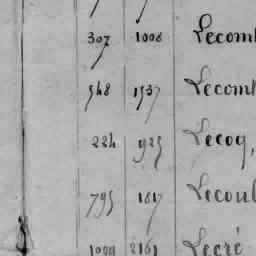 307 1008 Lecomt
548 1537 Lecomt
224 925 Lecoq,
795 1617 Lecoul
1099 2161 Lecré